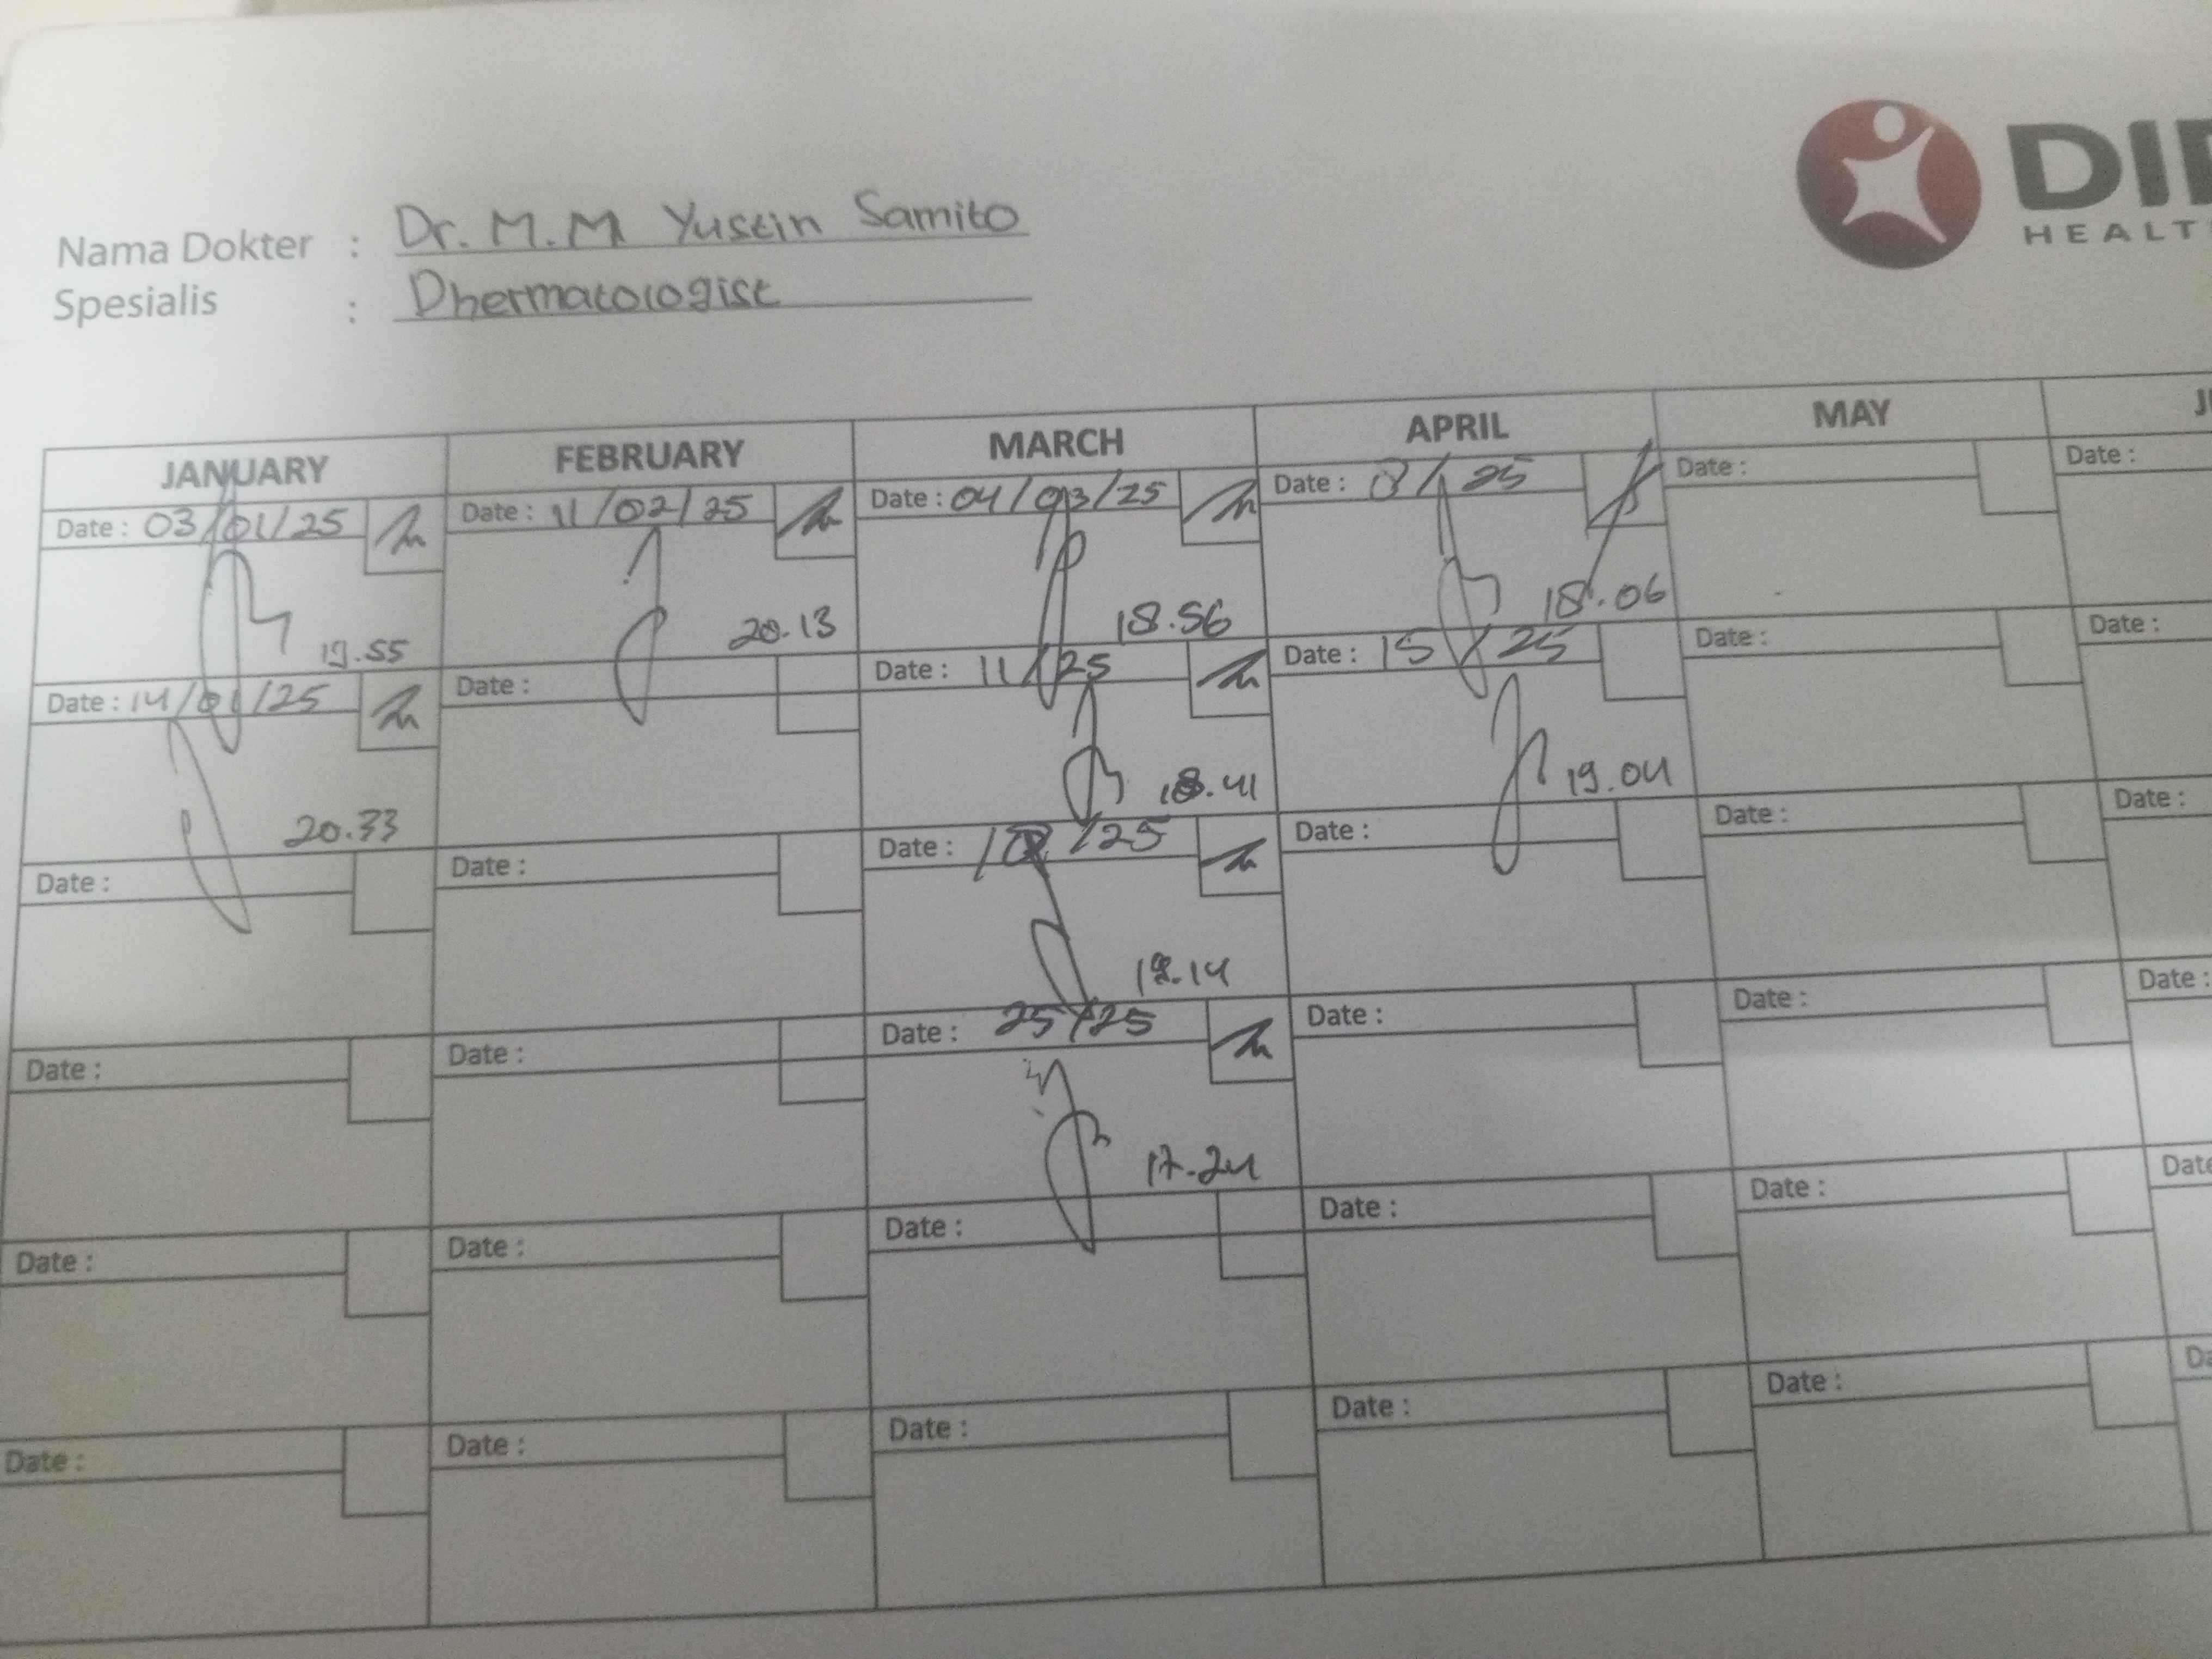 DI
HEALT
Nama Dokter : Dr. M.M Yustin Samito
Spesialis : Dhermatologist
JANUARY FEBRUARY MARCH APRIL MAY J
Date : 03/01/25 Date : 11/02/25 Date : 04/03/25 Date : 8/25 Date : Date :
19.55 20.13 18.56 18.06
Date : 14/01/25 Date : Date : 11/25 Date : 15/25 Date : Date :
20.33 18.41 19.04
Date : Date : Date : /25 Date : Date : Date :
Date : Date : Date : 25/25 Date : Date : Date :
17.24
Date : Date : Date : Date : Date : Date
Date : Date : Date : Date : Date : Da